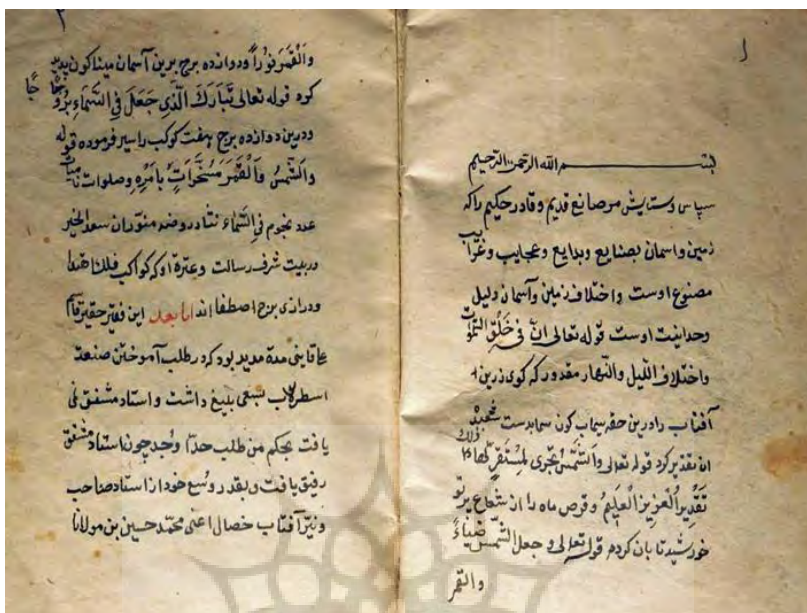 ۱
بسم الله الرحمن الرحیم
سپاس وستایش مر صانع قدیم وقادر حکیم راکه
زمین واسمان بصنایع وبدایع وعجایب وغرایب
مصنوع اوست واختلاف زمین وآسمان دلیل
وحدانیت اوست قوله تعالی ان فی خلق السموات
واختلاف اللیل والنهار مقدور که کوی زرین
آفتاب رادرین حقه سیماب کون بدست
ان تقدیر کرد قوله تعالی والشمس تجری لمستقر لها ذلک
تقدیر العزیز العلیم وقرص ماه را از شعاع پرتو
خورشید تابان کرده قوله تعالی وجعل الشمس ضیاءً
والقمر
۲
والقمر نوراً ودوازده برج برین آسمان میناکون پدید
کرد قوله تعالی تبارک الذی جعل فی السماء بروجاً
ودرین دوازده برج هفت کوکب راسیر فرموده قوله
والشمس والقمر مسخرات بامره وصلوات
عدد نجوم فی السماء نثار روضه منور ان سعد الخیر
بیت شرف رسالت وعترة اوکه کواکب فلک اهتدا
ودراری برج اصطفا اند اما بعد این فقیر حقیر قاسم
علی قاینی مدة مدید بود که در طلب آموختن صنعت
اسطرلاب سعی بلیغ داشت واستاد مشفق نمی
یافت بحکم من طلب وجد وجد چون استاد مشفق
رفیق یافت وبقدر وسع خود از استاد صاحب
ونیّر آفتاب خصال اعنی محمد حسین بن مولانا